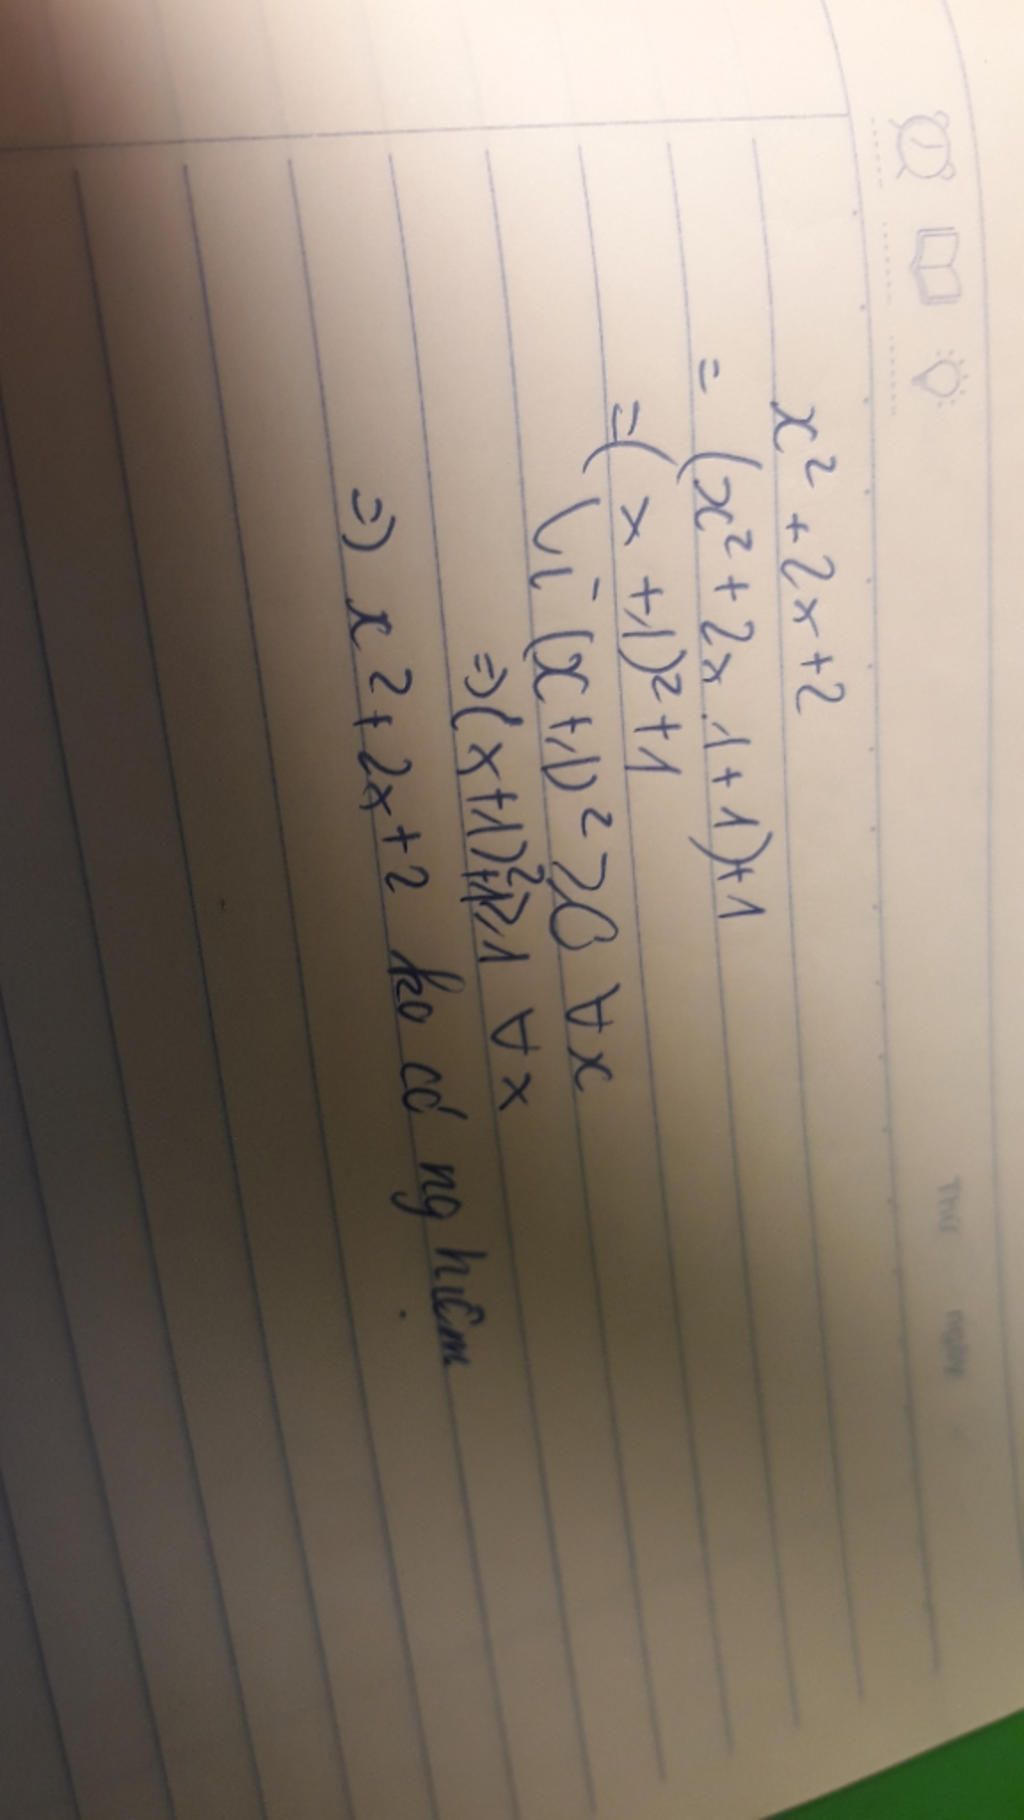 Thứ Ngày
x² + 2x + 2
= (x² + 2x.1 + 1) + 1
= (x + 1)² + 1
Vì (x + 1)² ≥ 0 ∀ x
=> (x + 1)² + 1 ≥ 1 ∀ x
=> x² + 2x + 2 ko có nghiệm